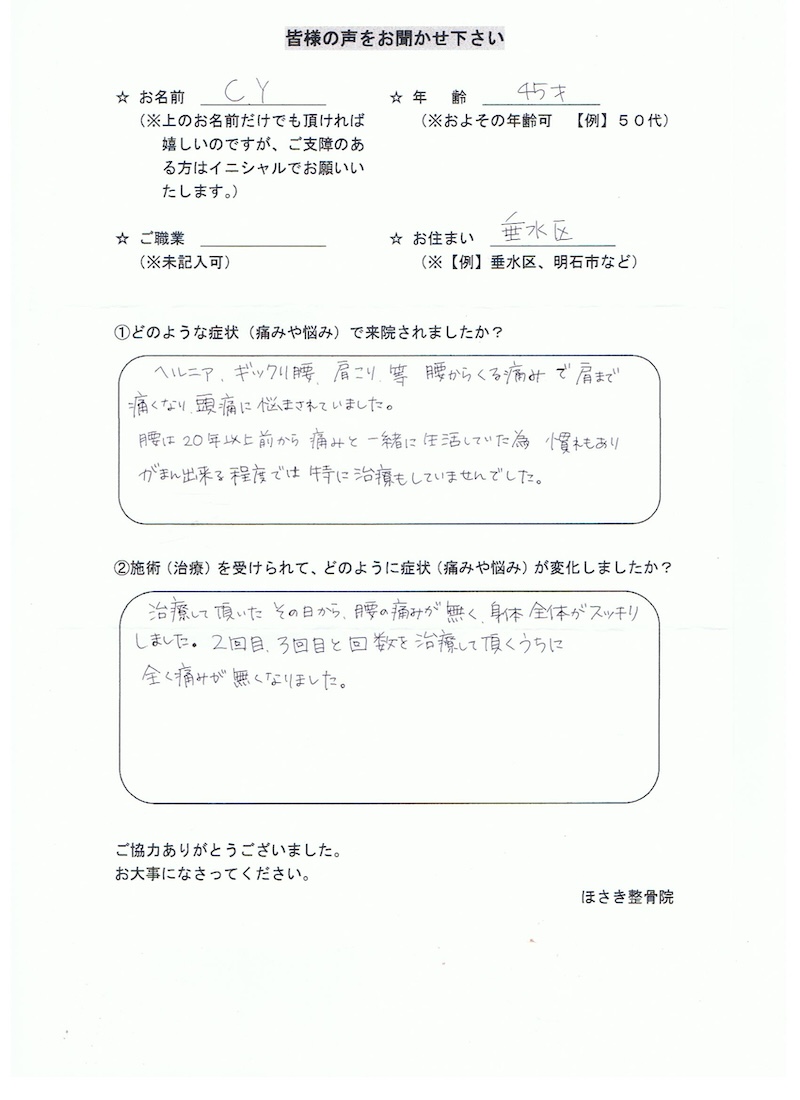 皆様の声をお聞かせ下さい
☆ お名前 C.Y ☆ 年 齢 45才
（※上のお名前だけでも頂ければ （※およその年齢可 【例】５０代）
嬉しいのですが、ご支障のあ
る方はイニシャルでお願いい
たします。）
☆ ご職業 ☆ お住まい 垂水区
（※未記入可） （※【例】垂水区、明石市など）
①どのような症状（痛みや悩み）で来院されましたか？
ヘルニア、ギックリ腰、肩こり、等 腰からくる痛みで肩まで
痛くなり、頭痛に悩まされていました。
腰は20年以上前から痛みと一緒に生活していた為 慣れもあり
がまん出来る程度では特に治療もしていませんでした。
②施術（治療）を受けられて、どのように症状（痛みや悩み）が変化しましたか？
治療して頂いたその日から、腰の痛みが無く、身体全体がスッキリ
しました。2回目、3回目と回数を治療して頂くうちに
全く痛みが無くなりました。
ご協力ありがとうございました。
お大事になさってください。
ほさき整骨院